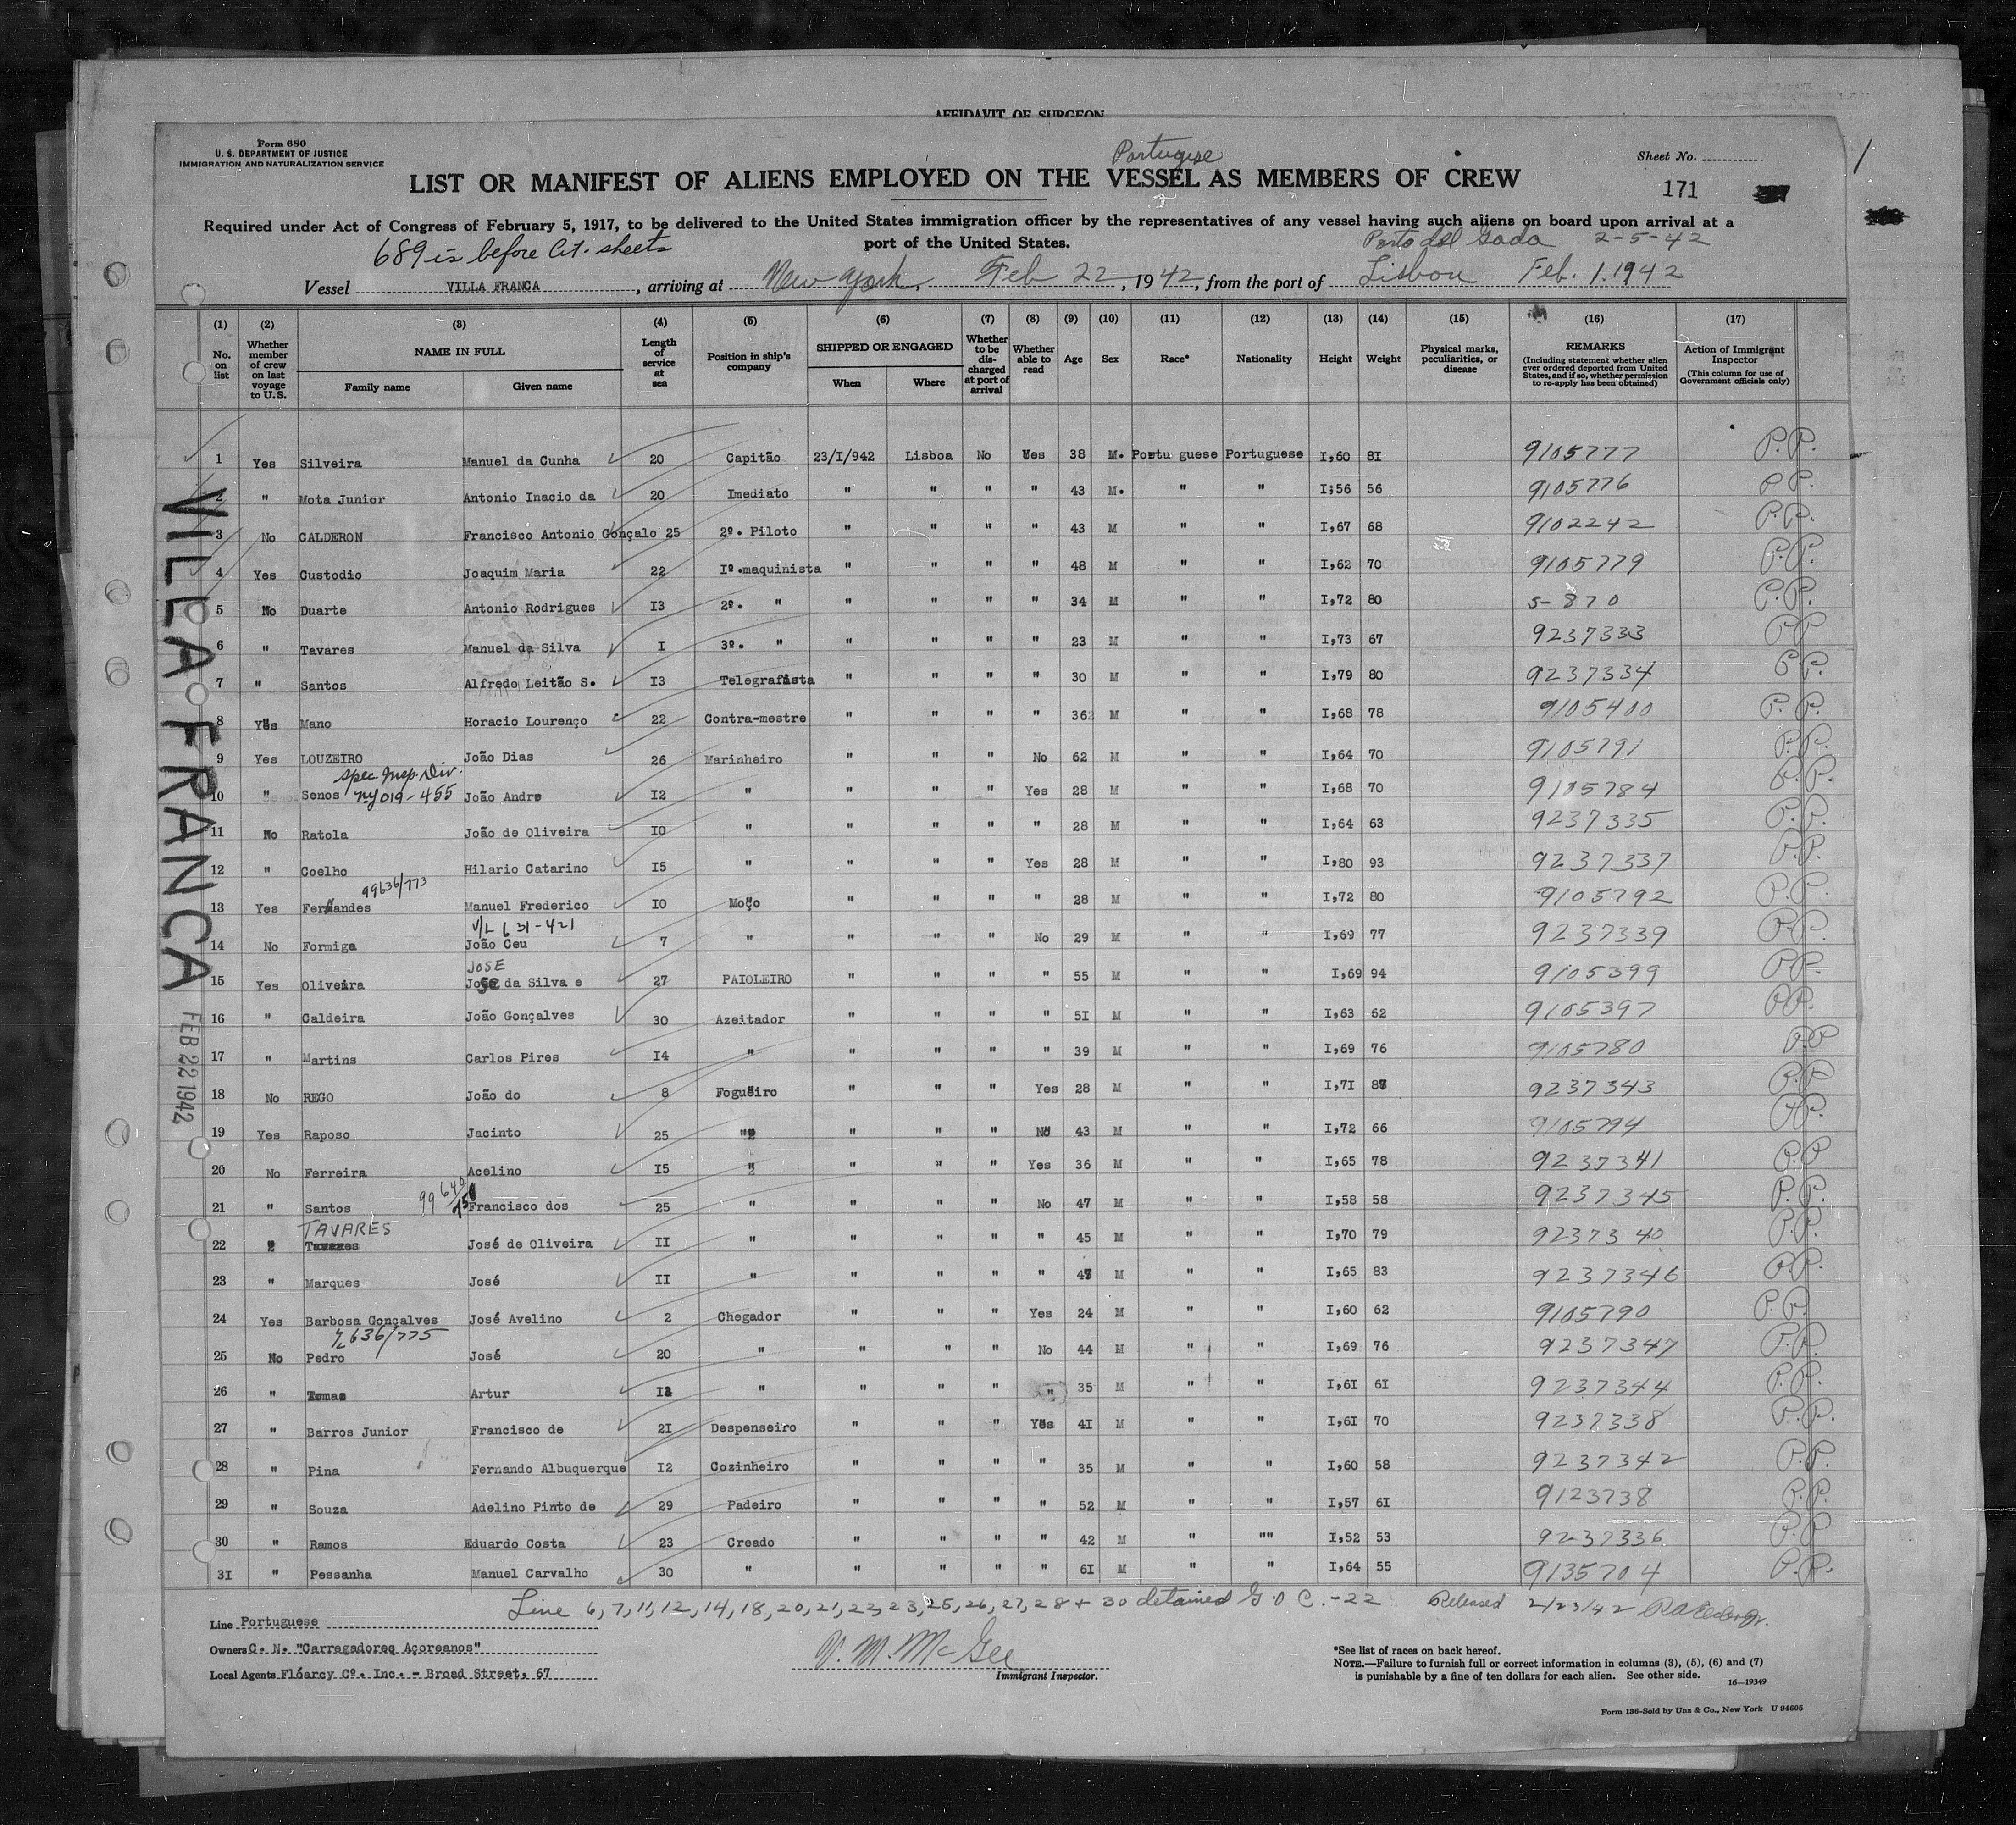 AFFIDAVIT OF SURGEON
Form 680
U. S. DEPARTMENT OF JUSTICE
IMMIGRATION AND NATURALIZATION SERVICE
Portugese
Sheet No.
171
LIST OR MANIFEST OF ALIENS EMPLOYED ON THE VESSEL AS MEMBERS OF CREW
Required under Act of Congress of February 5, 1917, to be delivered to the United States immigration officer by the representatives of any vessel having such aliens on board upon arrival at a
port of the United States.
689 is before Cit. sheets
Porto del Gada 2-5-42
Vessel VILLA FRANCA, arriving at New York, Feb 22, 1942, from the port of Lisbon Feb. 1. 1942
(1) (2) (3) (4) (5) (6) (7) (8) (9) (10) (11) (12) (13) (14) (15) (16) (17)
No. on list
Whether member of crew on last voyage to U.S.
NAME IN FULL
Family name Given name
Length of service at sea
Position in ship's company
SHIPPED OR ENGAGED
When Where
Whether to be discharged at port of arrival
Whether able to read
Age Sex Race* Nationality Height Weight
Physical marks, peculiarities, or disease
REMARKS
(Including statement whether alien ever ordered deported from United States, and if so, whether permission to re-apply has been obtained)
Action of Immigrant Inspector
(This column for use of Government officials only)
VILLA FRANCA FEB 22 1942
1 Yes Silveira Manuel da Cunha 20 Capitão 23/I/942 Lisboa No Yes 38 M. Portu guese Portuguese I,60 8I 9105777 P.P.
2 " Mota Junior Antonio Inacio da 20 Imediato " " " " 43 M. " " I,56 56 9105776 P.P.
3 No CALDERON Francisco Antonio Gonçalo 25 2º. Piloto " " " " 43 M " " I,67 68 9102242 P.P.
4 Yes Custodio Joaquim Maria 22 Iº.maquinista " " " " 48 M " " I,62 70 9105779 P.P.
5 No Duarte Antonio Rodrigues I3 2º. " " " " " 34 M " " I,72 80 5-870 P.P.
6 " Tavares Manuel da Silva I 3º. " " " " " 23 M " " I,73 67 9237333 P.P.
7 " Santos Alfredo Leitão S. I3 Telegrafista " " " " 30 M " " I,79 80 9237334 P.P.
8 Yes Mano Horacio Lourenço 22 Contra-mestre " " " " 36 M " " I,68 78 9105400 P.P.
9 Yes LOUZEIRO João Dias 26 Marinheiro " " " No 62 M " " I,64 70 9105791 P.P.
Spec Insp. Div.
NY 019-455
10 " Senos João Andre I2 " " " " Yes 28 M " " I,68 70 9105784 P.P.
11 No Ratola João de Oliveira I0 " " " " " 28 M " " I,64 63 9237335 P.P.
12 " Coelho Hilario Catarino I5 " " " " Yes 28 M " " I,80 93 9237337 P.P.
99636/773
13 Yes Fernandes Manuel Frederico I0 Moço " " " " 28 M " " I,72 80 9105792 P.P.
V/L 631-421
14 No Formiga João Ceu 7 " " " " No 29 M " " I,69 77 9237339 P.P.
JOSE
15 Yes Oliveira José da Silva e 27 PAIOLEIRO " " " " 55 M " " I,69 94 9105399 P.P.
16 " Caldeira João Gonçalves 30 Azeitador " " " " 5I M " " I,63 62 9105397 P.P.
17 " Martins Carlos Pires I4 " " " " " 39 M " " I,69 76 9105780 P.P
18 No REGO João do 8 Fogueiro " " " Yes 28 M " " I,7I 9237343 P.P
19 Yes Raposo Jacinto 25 " " " " No 43 M " " I,72 66 9105794 P.P.
20 No Ferreira Acelino I5 " " " " Yes 36 M " " I,65 78 9237341 P.P
99640/
21 " Santos Francisco dos 25 " " " " No 47 M " " I,58 58 9237345 P.P.
TAVARES
22 " Tavares José de Oliveira II " " " " " 45 M " " I,70 79 9237340 P.P.
23 " Marques José II " " " " " M " " I,65 83 9237346 P.P.
24 Yes Barbosa Gonçalves José Avelino 2 Chegador " " " Yes 24 M " " I,60 62 9105790 P.P.
636/775
25 No Pedro José 20 " " " " No 44 M " " I,69 76 9237347 P.P.
26 " Tomas Artur " " " " " 35 M " " I,6I 6I 9237344 P.P.
27 " Barros Junior Francisco de 2I Despenseiro " " " Yes 4I M " " I,6I 70 9237338 P.P.
28 " Pina Fernando Albuquerque I2 Cozinheiro " " " " 35 M " " I,60 58 9237342 P.P.
29 " Souza Adelino Pinto de 29 Padeiro " " " " 52 M " " I,57 6I 9123738 P.P.
30 " Ramos Eduardo Costa 23 Creado " " " " 42 M " "" I,52 53 9237336 P.P
3I " Pessanha Manuel Carvalho 30 " " " " " 6I M " " I,64 55 9135704 P.P.
Line 6, 7, 11, 12, 14, 18, 20, 21, 22, 23, 25, 26, 27, 28 + 30 detained G O C. -22 Released 2/23/42
Line Portuguese
Owners C. N. "Carregadores Açoreanos"
Local Agents Flóarcy Cº. Inc. - Broad Street, 67
V. M. McGee
Immigrant Inspector.
*See list of races on back hereof.
NOTE.—Failure to furnish full or correct information in columns (3), (5), (6) and (7)
is punishable by a fine of ten dollars for each alien. See other side.
16—19349
Form 136-Sold by Unz & Co., New York U 94605